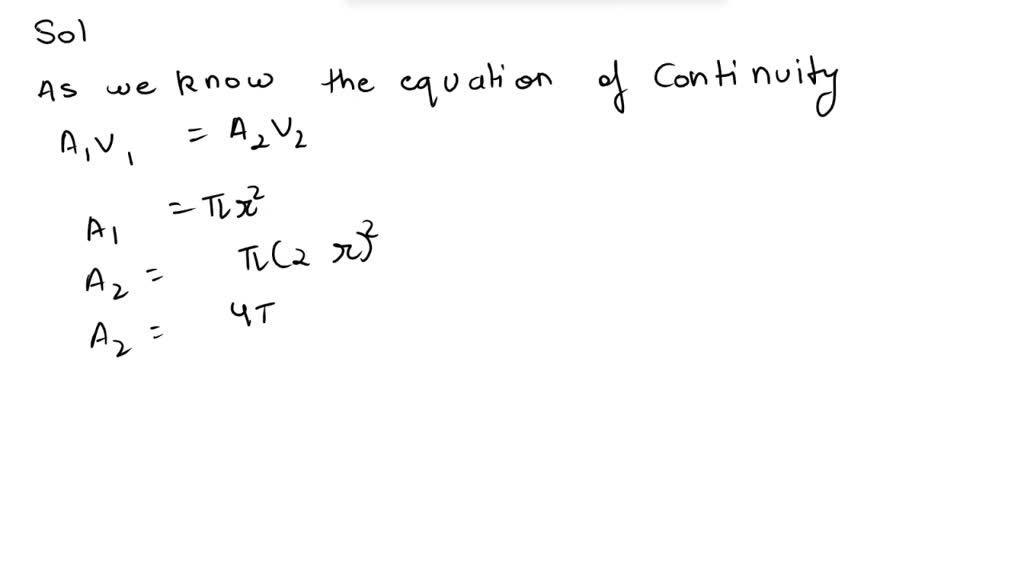 Sol
As we know the equation of Continuity
A₁V₁ = A₂V₂
A₁ = πr²
A₂ = π(2 r)²
A₂ = 4π